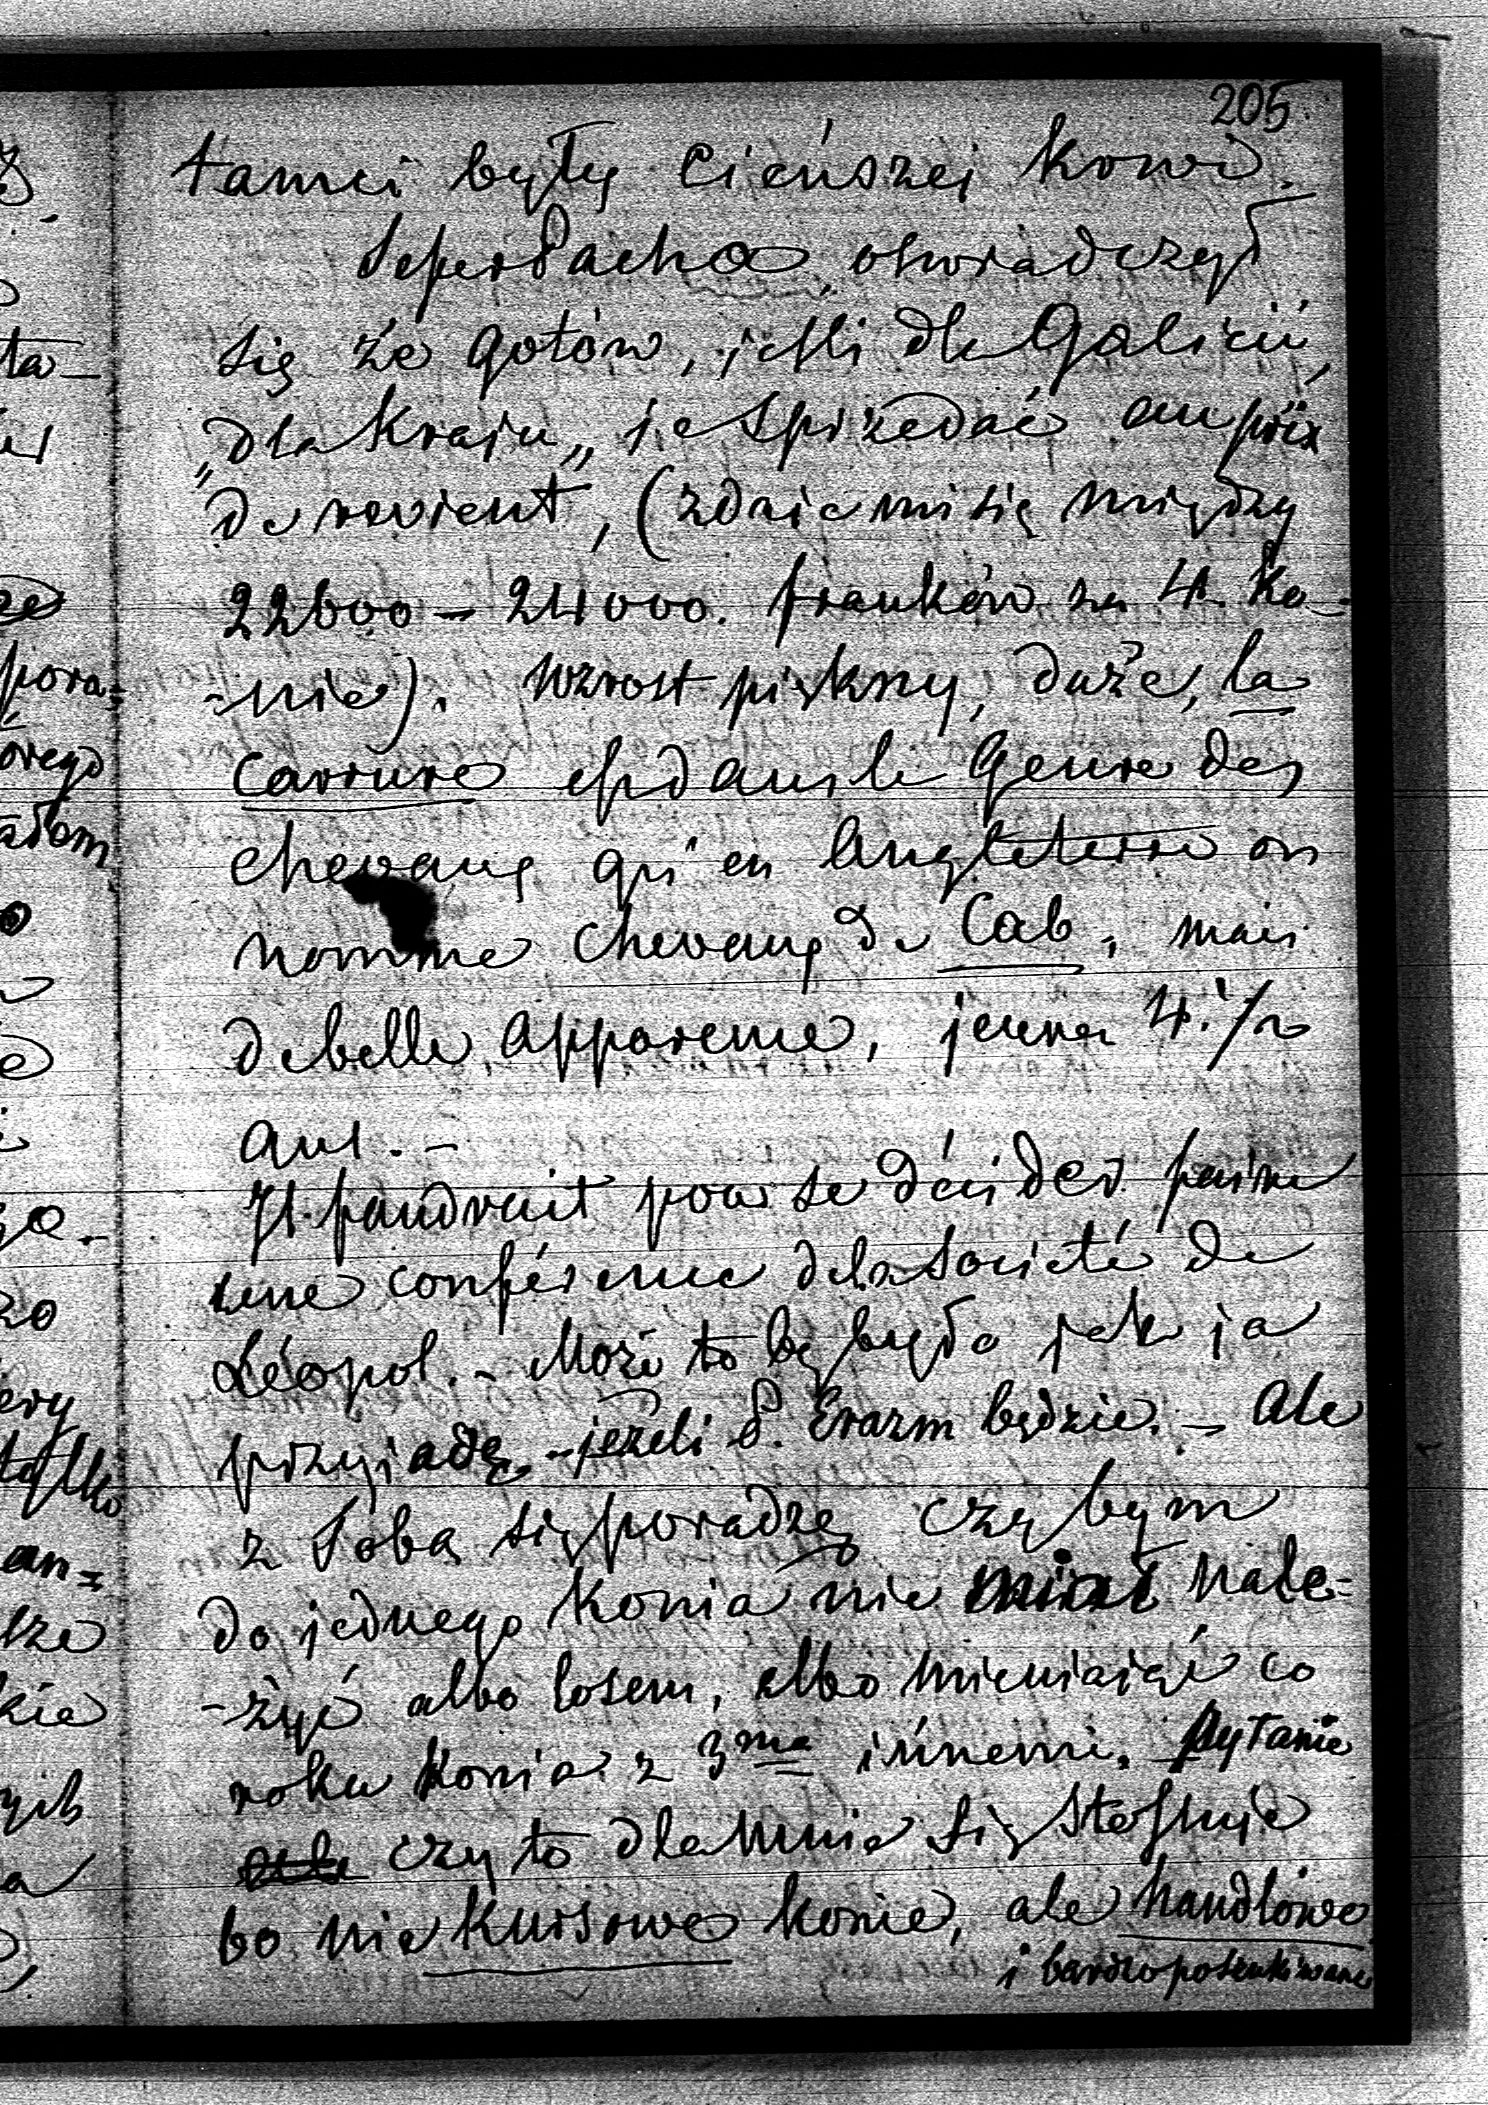 205
tamci były cieńszej konie
Seferpacha, oświadczył
się że gotów, jeśli dla Galicii,
"dla Kraju" je sprzedać au prix
de revient, (zdaje mi się między
22600 – 24000. franków za 4. Ko-
-nie). Wzrost piękny, duże, la
carrure est dans le genre des
chevaux qu'en Angleterre on
nomme chevaux de Cab, mais
de belle apparence, jeunes 4.1/2
ans. –
Il faudrait pour se décider faire
une conférence de la Societé de
Léopol. – Może to by było jak ja
przyjadę – jeżeli P. Erazm będzie. – Ale
z Sobą się poradzę czy bym
do jednego Konia nie miał nale=
-żyć albo losem, albo mieniając co
roku Konia z 3ma innemi. Pytanie
czy to dla mnie się stosuje
bo nie Kursowe konie, ale handlowe
i bardzo poszukiwane
ta–
pora=
órego
adom
ery
tylko
an=
kie
ych